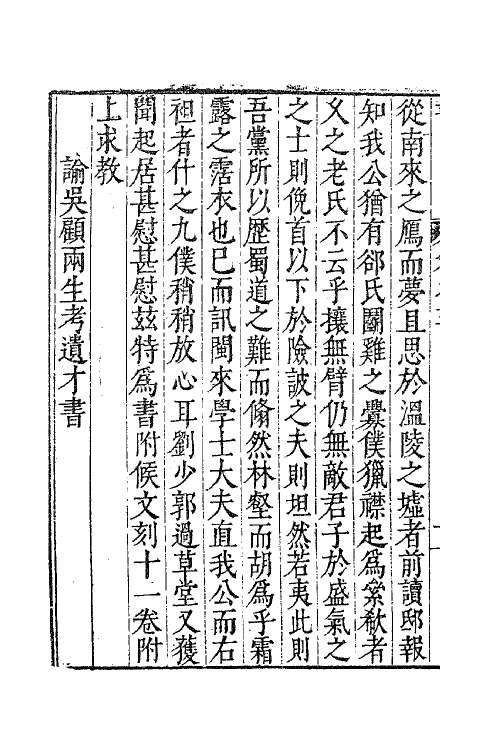 從南來之鴈而夢且思於溫陵之墟者前讀邸報
知我公猶有郤氏鬭雞之釁僕獵襟起為絫欷者
乂之老氏不云乎攘無臂仍無敵君子於盛氣之
之士則俛首以下於險詖之夫則坦然若夷此則
吾黨所以歷蜀道之難而翛然林壑而胡為乎霜
露之霑衣也已而訊閩來學士大夫直我公而右
袒者什之九僕稍稍放心耳劉少郭過草堂又獲
聞起居甚慰甚慰玆特為書附候文刻十一卷附
上求教
諭吳顧兩生考遺才書